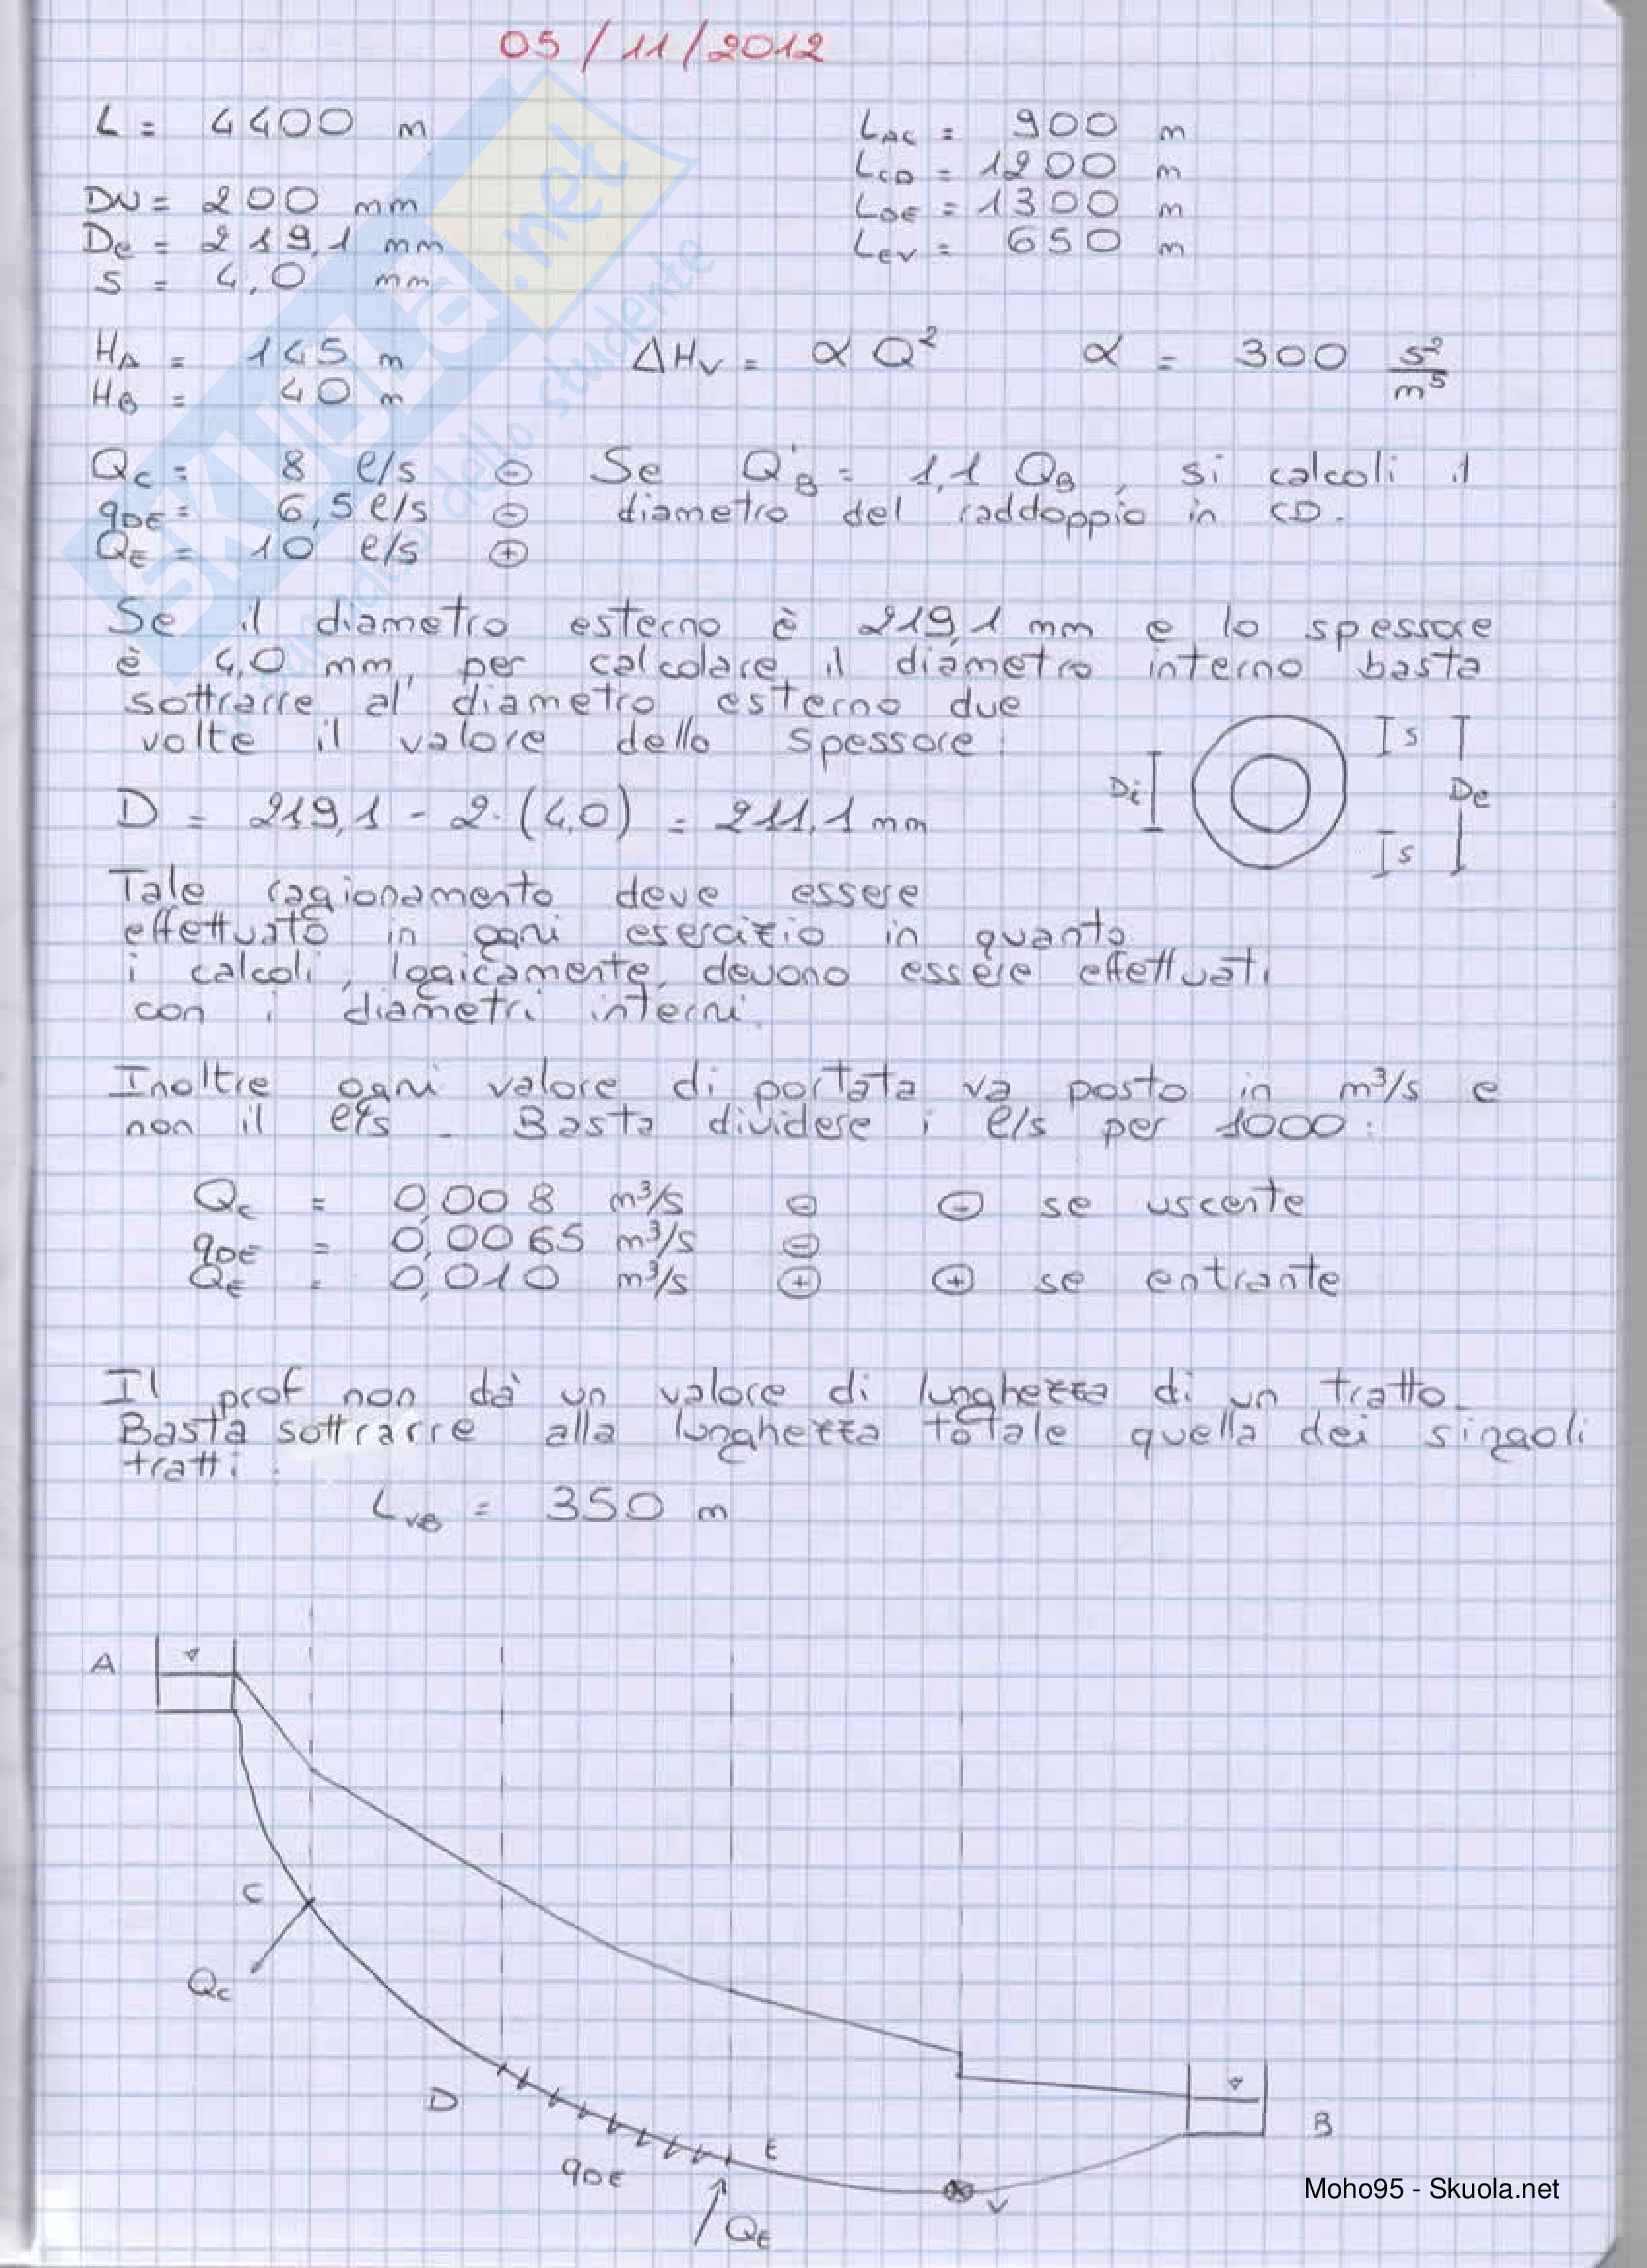 05/11/2012
L = 4400 m
L_AC = 900 m
L_CD = 1200 m
DN = 200 mm
L_DE = 1300 m
De = 219,1 mm
L_EV = 650 m
s = 4,0 mm
H_A = 145 m
ΔH_V = α Q² α = 300 s²/m⁵
H_B = 40 m
Q_C = 8 l/s ⊖ Se Q'_B = 1,1 Q_B, si calcoli il
q_DE = 6,5 l/s ⊖ diametro del raddoppio in CD.
Q_E = 10 l/s ⊕
Se il diametro esterno è 219,1 mm e lo spessore
è 4,0 mm, per calcolare il diametro interno basta
sottrarre al diametro esterno due
volte il valore dello spessore:
D = 219,1 - 2·(4,0) = 211,1 mm
Di
s
De
s
Tale ragionamento deve essere
effettuato in ogni esercizio in quanto
i calcoli, logicamente, devono essere effettuati
con i diametri interni.
Inoltre ogni valore di portata va posto in m³/s e
non il l/s. Basta dividere i l/s per 1000:
Q_C = 0,008 m³/s ⊖ ⊖ se uscente
q_DE = 0,0065 m³/s ⊖
Q_E = 0,010 m³/s ⊕ ⊕ se entrante
Il prof non dà un valore di lunghezza di un tratto.
Basta sottrarre alla lunghezza totale quella dei singoli
tratti:
L_VB = 350 m
A
C
Q_C
D
q_DE
E
Q_E
V
B
SKUOLA.net
dello studente
Moho95 - Skuola.net